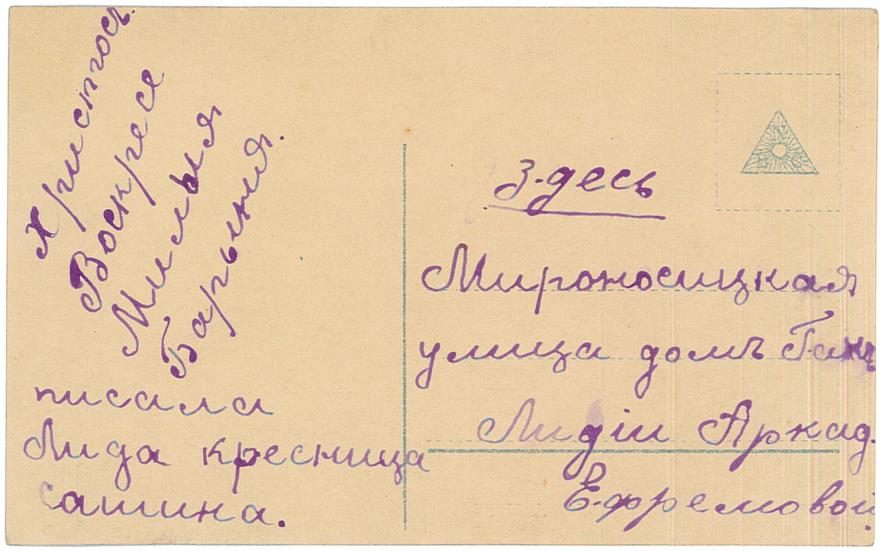 Христосъ
Воскресе
Милыя
Барыня.
писала
Лида кресница
Сашина.
Здесь
Мироносицкая
улица домъ
Лидіи Аркад.
Ефремовой